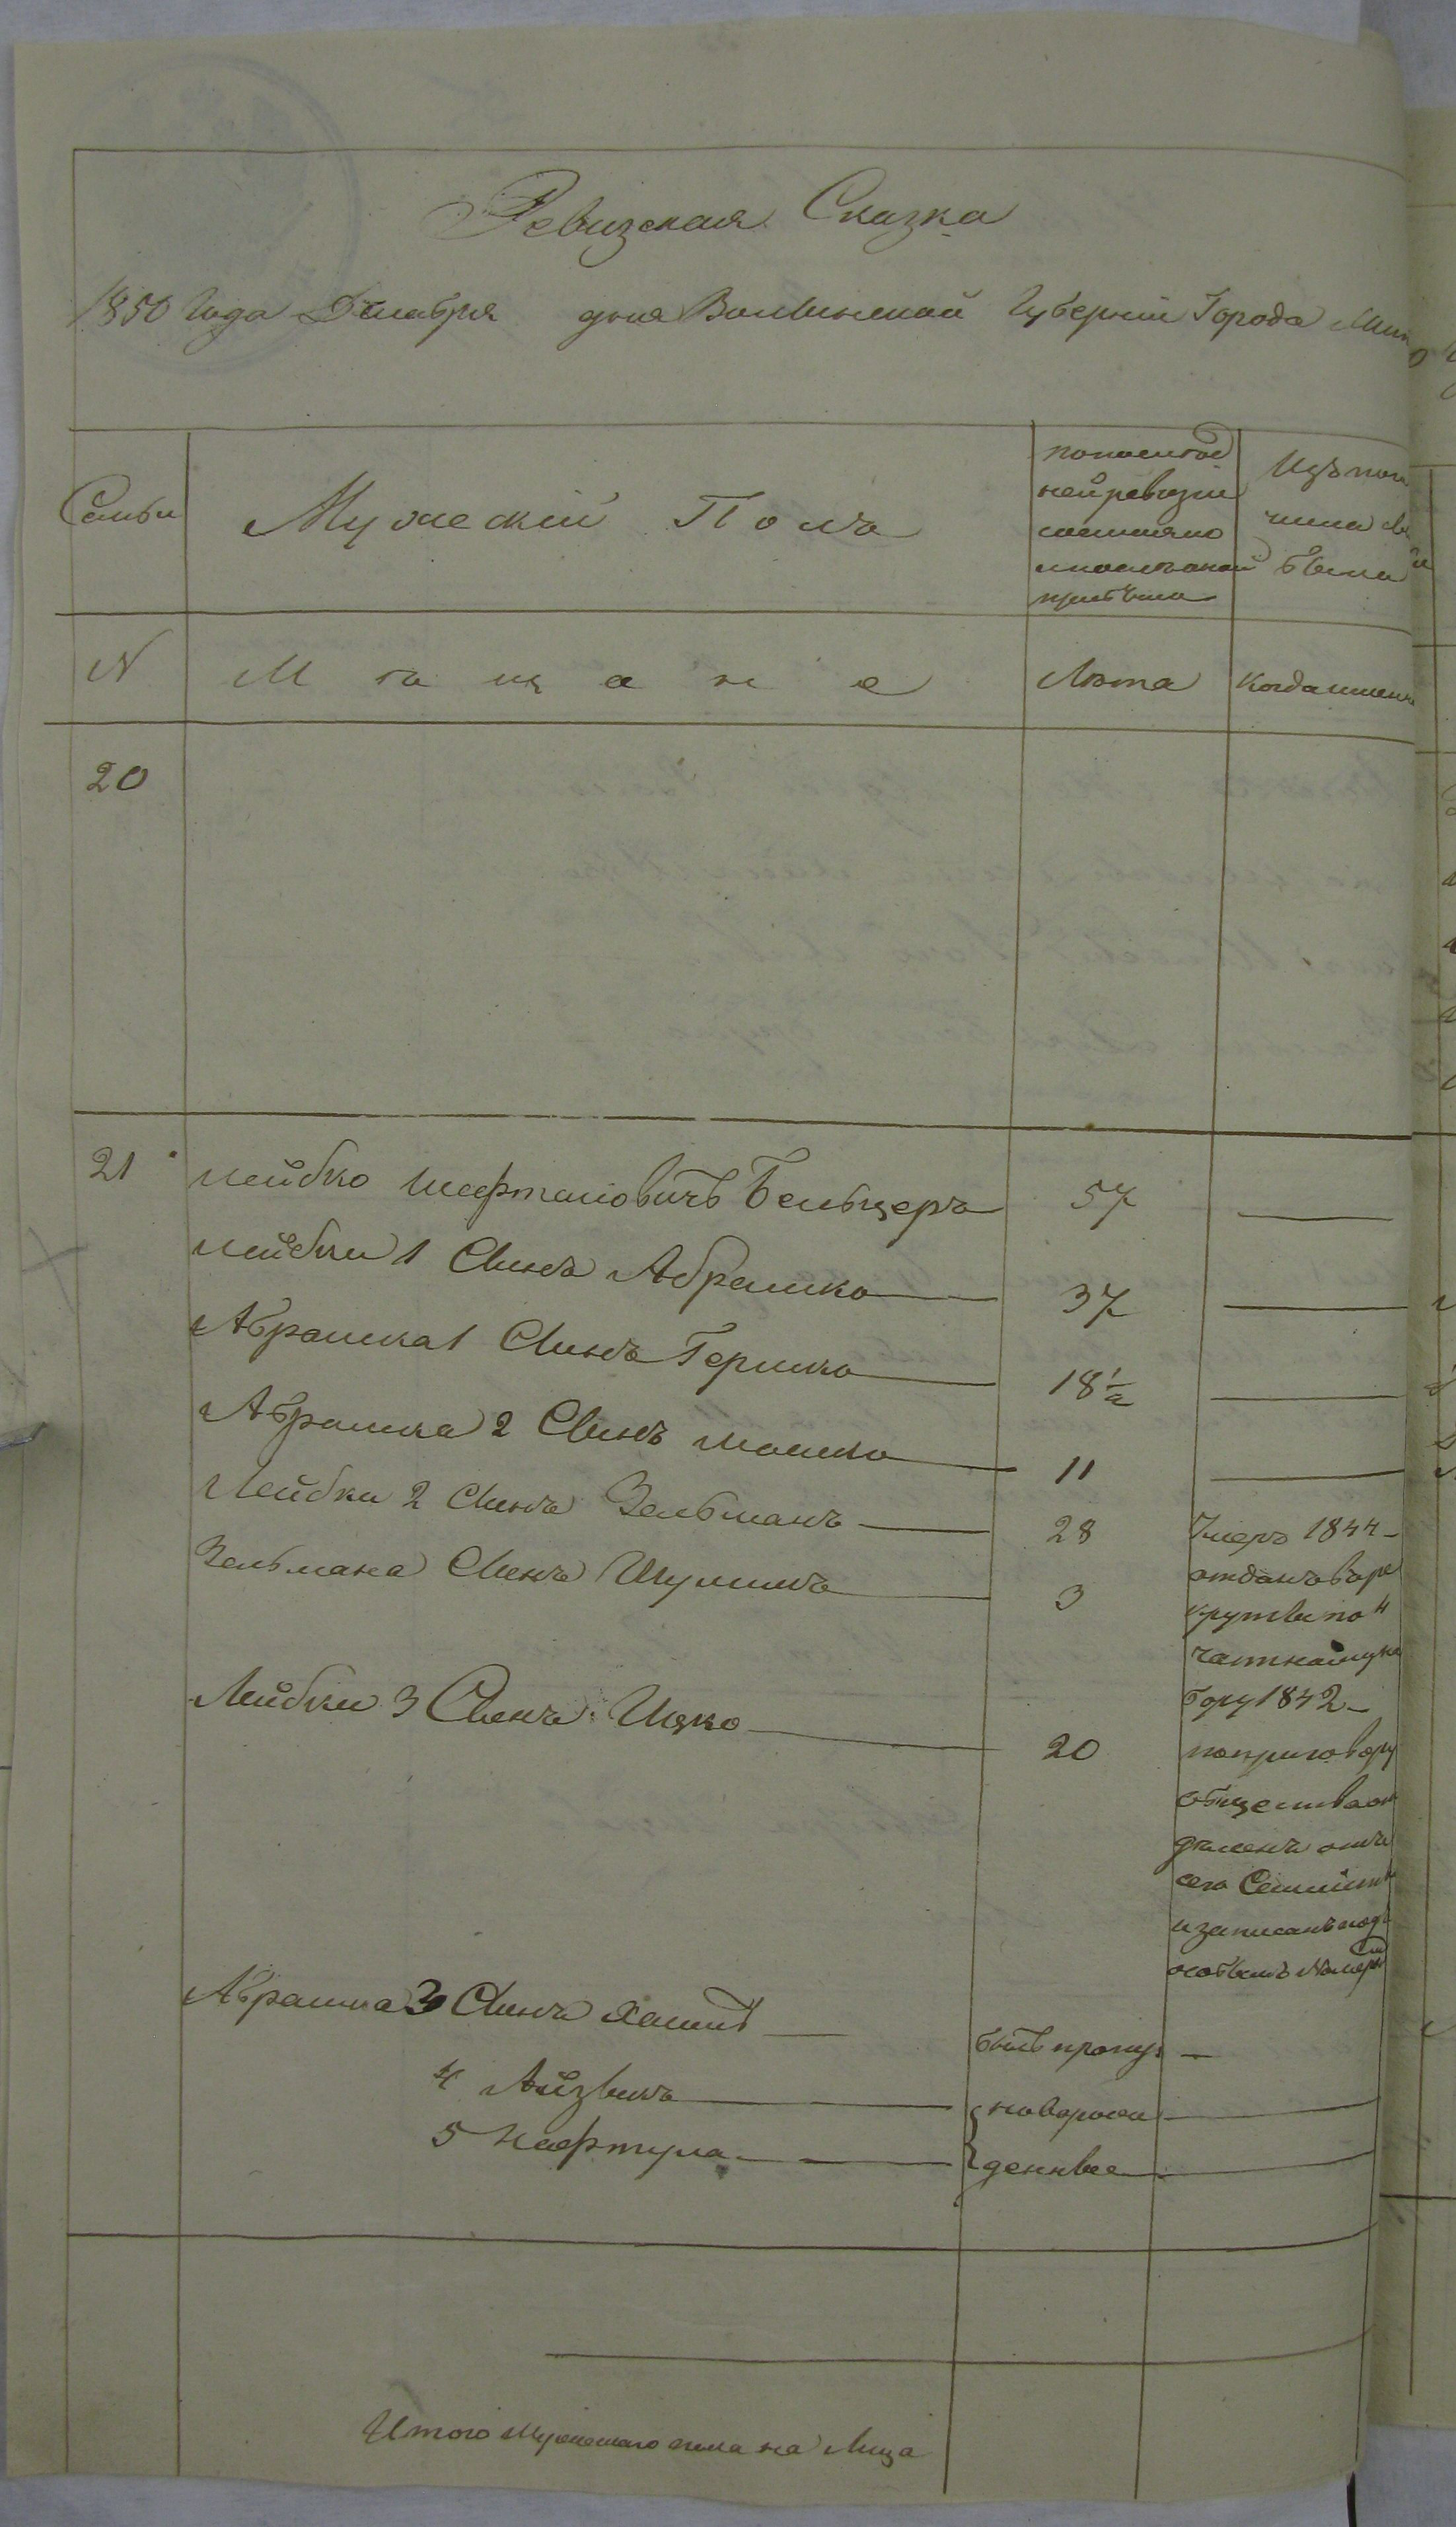 Ревизская Сказка
1850 Года Декабря дня Волынской Губернии Города
Семьи
Мужеский Полъ
по последней ревизии состояло и после оной прибыло
Изъ того числа выбыло
N
Мѣщане
Лѣта
Когда именно
20
21 Лейбко Шефтеловичъ Бельцеръ 57
Лейбки 1 Сынъ Абрашко 37
Абрашка 1 Сынъ Гершко 18½
Абрашка 2 Сынъ Мошко 11
Лейбки 2 Сынъ Зельманъ 28 Умеръ 1844
Зельмана Сынъ Шулимъ 3 отданъ въ ре
крутъ по
частному на
бору 1842
Лейбки 3 Сынъ Ицко 20 по приговору
общества от
дѣленъ отъ
сего Семейства
и записанъ подъ
особымъ Номеромъ
Абрашка 3 Сынъ Хаимъ былъ пропу.
4 Айзыкъ новорож
5 Нафтула денные
Итого мужескаго пола на Лицо